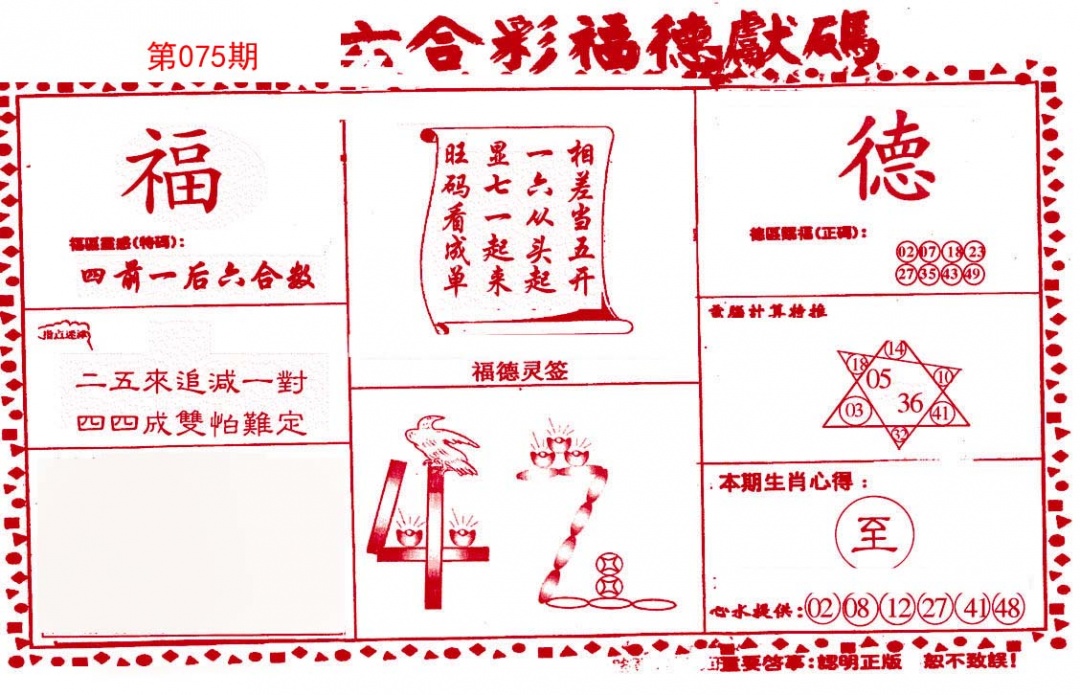 第075期
六合彩福德獻碼
福
福區靈感(特碼):
四前一后六合数
指点迷津
二五來追減一對
四四成雙怕難定
相差当五开
一六从头起
显七一起来
旺码看成单
福德灵签
42
德
德區賜福(正碼):
02 07 18 23
27 35 43 49
電腦計算特推
14
18 05 10
03 36 41
32
本期生肖心得:
至
心水提供:02 08 12 27 41 48
重要啓事:認明正版 恕不致誤!